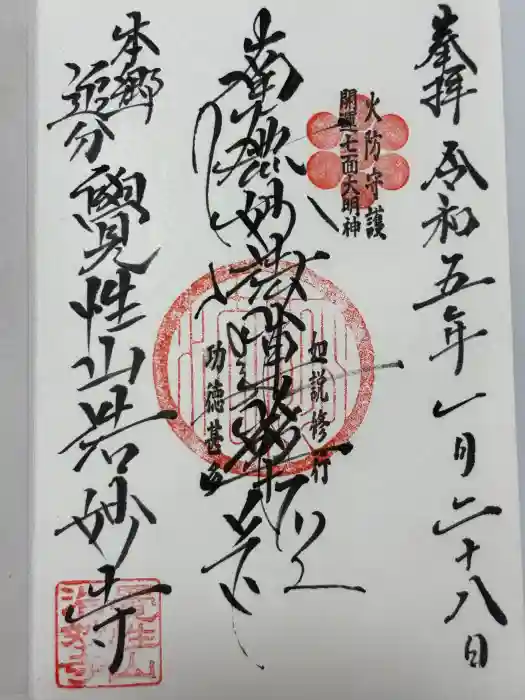 奉拝 令和五年一月二十八日
火防守護
開運七面大明神
南無妙法蓮華経
如説修行
功徳甚多
本郷
追分 覺性山長妙寺
覺性山